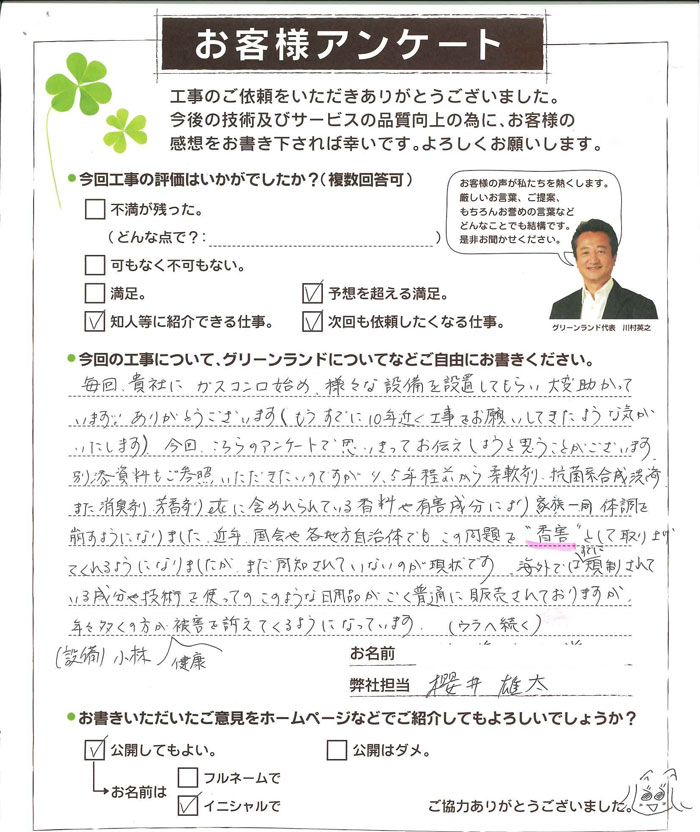 お客様アンケート
工事のご依頼をいただきありがとうございました。
今後の技術及びサービスの品質向上の為に、お客様の
感想をお書き下されば幸いです。よろしくお願いします。
●今回工事の評価はいかがでしたか?(複数回答可)
お客様の声が私たちを熱くします。
厳しいお言葉、ご提案、
もちろんお誉めの言葉など
どんなことでも結構です。
是非お聞かせください。
不満が残った。
(どんな点で?: )
可もなく不可もない。
満足。
予想を超える満足。
知人等に紹介できる仕事。
次回も依頼したくなる仕事。
グリーンランド代表 川村英之
●今回の工事について、グリーンランドについてなどご自由にお書きください。
毎回、貴社に ガスコンロ始め、様々な設備を設置してもらい 大変助かって
います。ありがとうございます(もうすでに10年近く工事をお願いしてきたような気が
いたします) 今回、こちらのアンケートで思いきってお伝えしようと思うことがございます
別添資料もご参照いただきたいのですが 4、5年程前から柔軟剤、抗菌系合成洗剤
また消臭剤、芳香剤 etcに含められられている香料や有害成分により 家族一同 体調を
崩すようになりました 近年、国会や各地方自治体でも この問題を "香害" として取り上げ
てくれるようになりましたが、まだ周知されていないのが現状です 海外ではすでに規制されて
いる成分や技術を使っての このような日用品が ごく普通に販売されておりますが、
年々多くの方が健康被害を訴えてくるようになっています。 (ウラへ続く)
(設備) 小林
お名前
弊社担当 櫻井 雄太
●お書きいただいたご意見をホームページなどでご紹介してもよろしいでしょうか?
公開してもよい。
公開はダメ。
お名前は
フルネームで
イニシャルで
ご協力ありがとうございました。